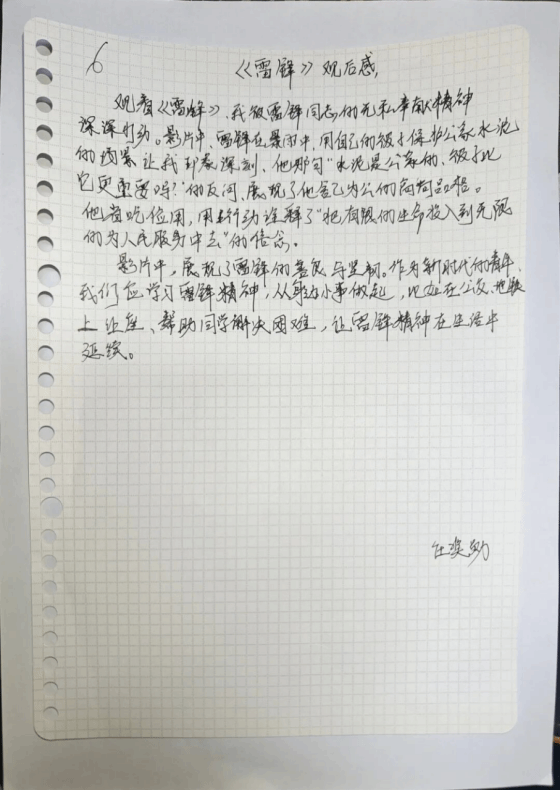 6
《雷锋》观后感
观看《雷锋》,我被雷锋同志的无私奉献精神
深深打动。影片中,雷锋在暴雨中,用自己的被子保护公家水泥
的场景让我印象深刻,他那句"水泥是公家的,被子比
它更重要吗?"的反问,展现了他舍己为公的高尚品格。
他省吃俭用,用行动诠释了"把有限的生命投入到无限
的为人民服务中去"的信念。
影片中,展现了雷锋的善良与坚韧。作为新时代的青年,
我们应学习雷锋精神,从身边小事做起,比如在公交、地铁
上让座、帮助同学解决困难,让雷锋精神在生活中
延续。